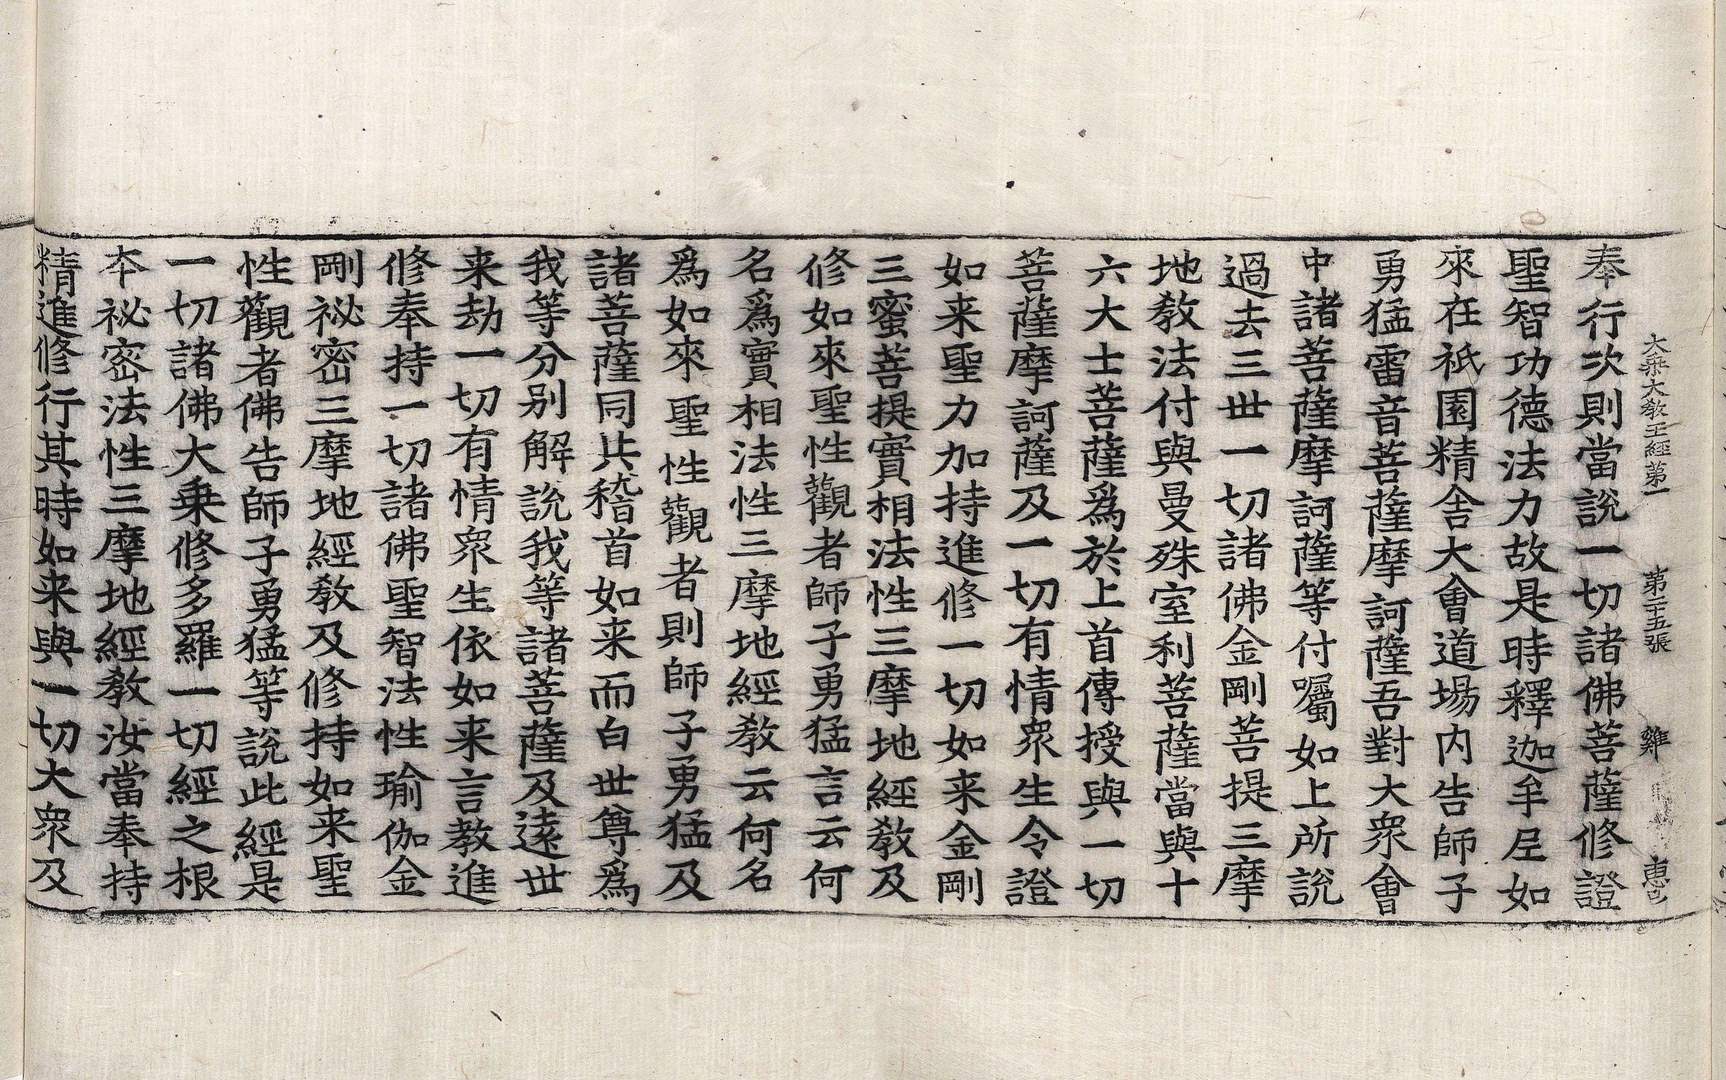 大乘大教王經第一 第二十五張 雞 惠
奉行次則當說一切諸佛菩薩修證
聖智功德法力故是時釋迦牟尼如
來在祇園精舍大會道場内告師子
勇猛雷音菩薩摩訶薩吾對大衆會
中諸菩薩摩訶薩等付囑如上所說
過去三世一切諸佛金剛菩提三摩
地教法付與曼殊室利菩薩當與十
六大士菩薩爲於上首傳授與一切
菩薩摩訶薩及一切有情衆生令證
如来聖力加持進修一切如来金剛
三蜜菩提實相法性三摩地經教及
修如來聖性觀者師子勇猛言云何
名爲實相法性三摩地經教云何名
爲如來聖性觀者則師子勇猛及
諸菩薩同共稽首如来而白世尊爲
我等分别解說我等諸菩薩及逺世
来劫一切有情衆生依如来言教進
修奉持一切諸佛聖智法性瑜伽金
剛祕密三摩地經教及修持如来聖
性觀者佛告師子勇猛等說此經是
一切諸佛大乗修多羅一切經之根
夲祕密法性三摩地經教汝當奉持
精進修行其時如来與一切大衆及